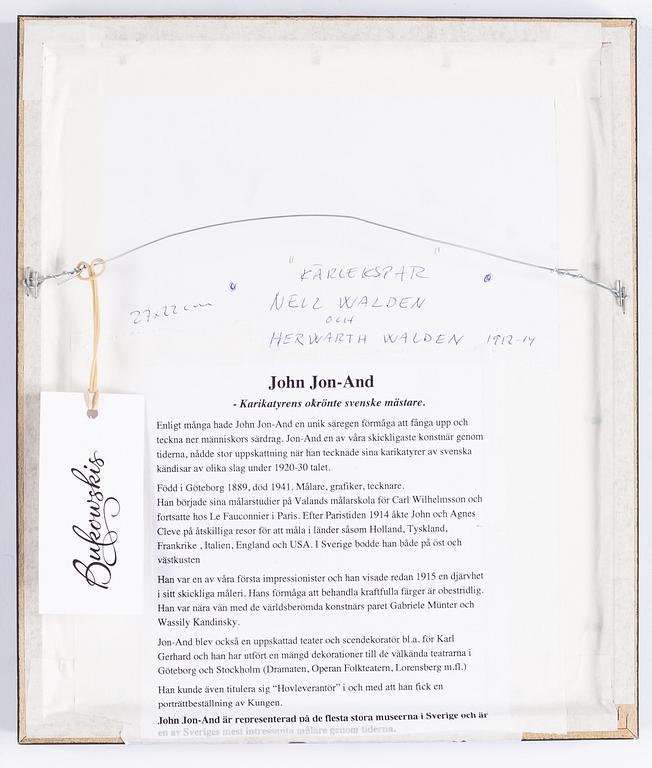 "KÄRLEKSPAR"
27x22 cm
NELL WALDEN
OCH
HERWARTH WALDEN 1912-14
John Jon-And
- Karikatyrens okrönte svenske mästare.
Enligt många hade John Jon-And en unik säregen förmåga att fånga upp och
teckna ner människors särdrag. Jon-And en av våra skickligaste konstnär genom
tiderna, nådde stor uppskattning när han tecknade sina karikatyrer av svenska
kändisar av olika slag under 1920-30 talet.
Född i Göteborg 1889, död 1941. Målare, grafiker, tecknare.
Han började sina målarstudier på Valands målarskola för Carl Wilhelmsson och
fortsatte hos Le Fauconnier i Paris. Efter Paristiden 1914 åkte John och Agnes
Cleve på åtskilliga resor för att måla i länder såsom Holland, Tyskland,
Frankrike , Italien, England och USA. I Sverige bodde han både på öst och
västkusten
Han var en av våra första impressionister och han visade redan 1915 en djärvhet
i sitt skickliga måleri. Hans förmåga att behandla kraftfulla färger är obestridlig.
Han var nära vän med de världsberömda konstnärs paret Gabriele Münter och
Wassily Kandinsky.
Jon-And blev också en uppskattad teater och scendekoratör bl.a. för Karl
Gerhard och han har utfört en mängd dekorationer till de välkända teatrarna i
Göteborg och Stockholm (Dramaten, Operan Folkteatern, Lorensberg m.fl.)
Han kunde även titulera sig "Hovleverantör" i och med att han fick en
porträttbeställning av Kungen.
John Jon-And är representerad på de flesta stora museerna i Sverige och är
en av Sveriges mest intressanta målare genom tiderna.
Bukowskis